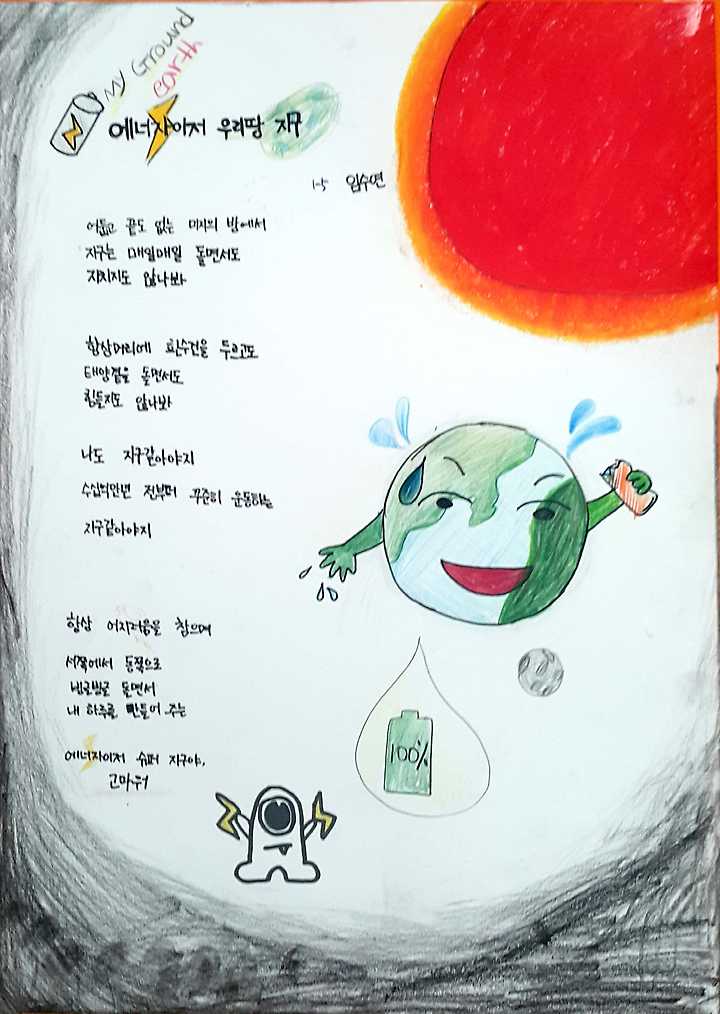 My Ground
earth
에너자이저 우리땅 지구
1-5 임수연
어둡고 끝도 없는 미지의 밤에서
지구는 매일매일 돌면서도
지치지도 않나봐
항상머리에 흰수건을 두르고도
태양곁을 돌면서도
힘들지도 않나봐
나도 지구같아야지
수십억만년 전부터 꾸준히 운동하는
지구같아야지
항상 어지러움을 참으며
서쪽에서 동쪽으로
빙글빙글 돌면서
내 하루를 만들어 주는
에너자이저 슈퍼 지구야,
고마워
100%